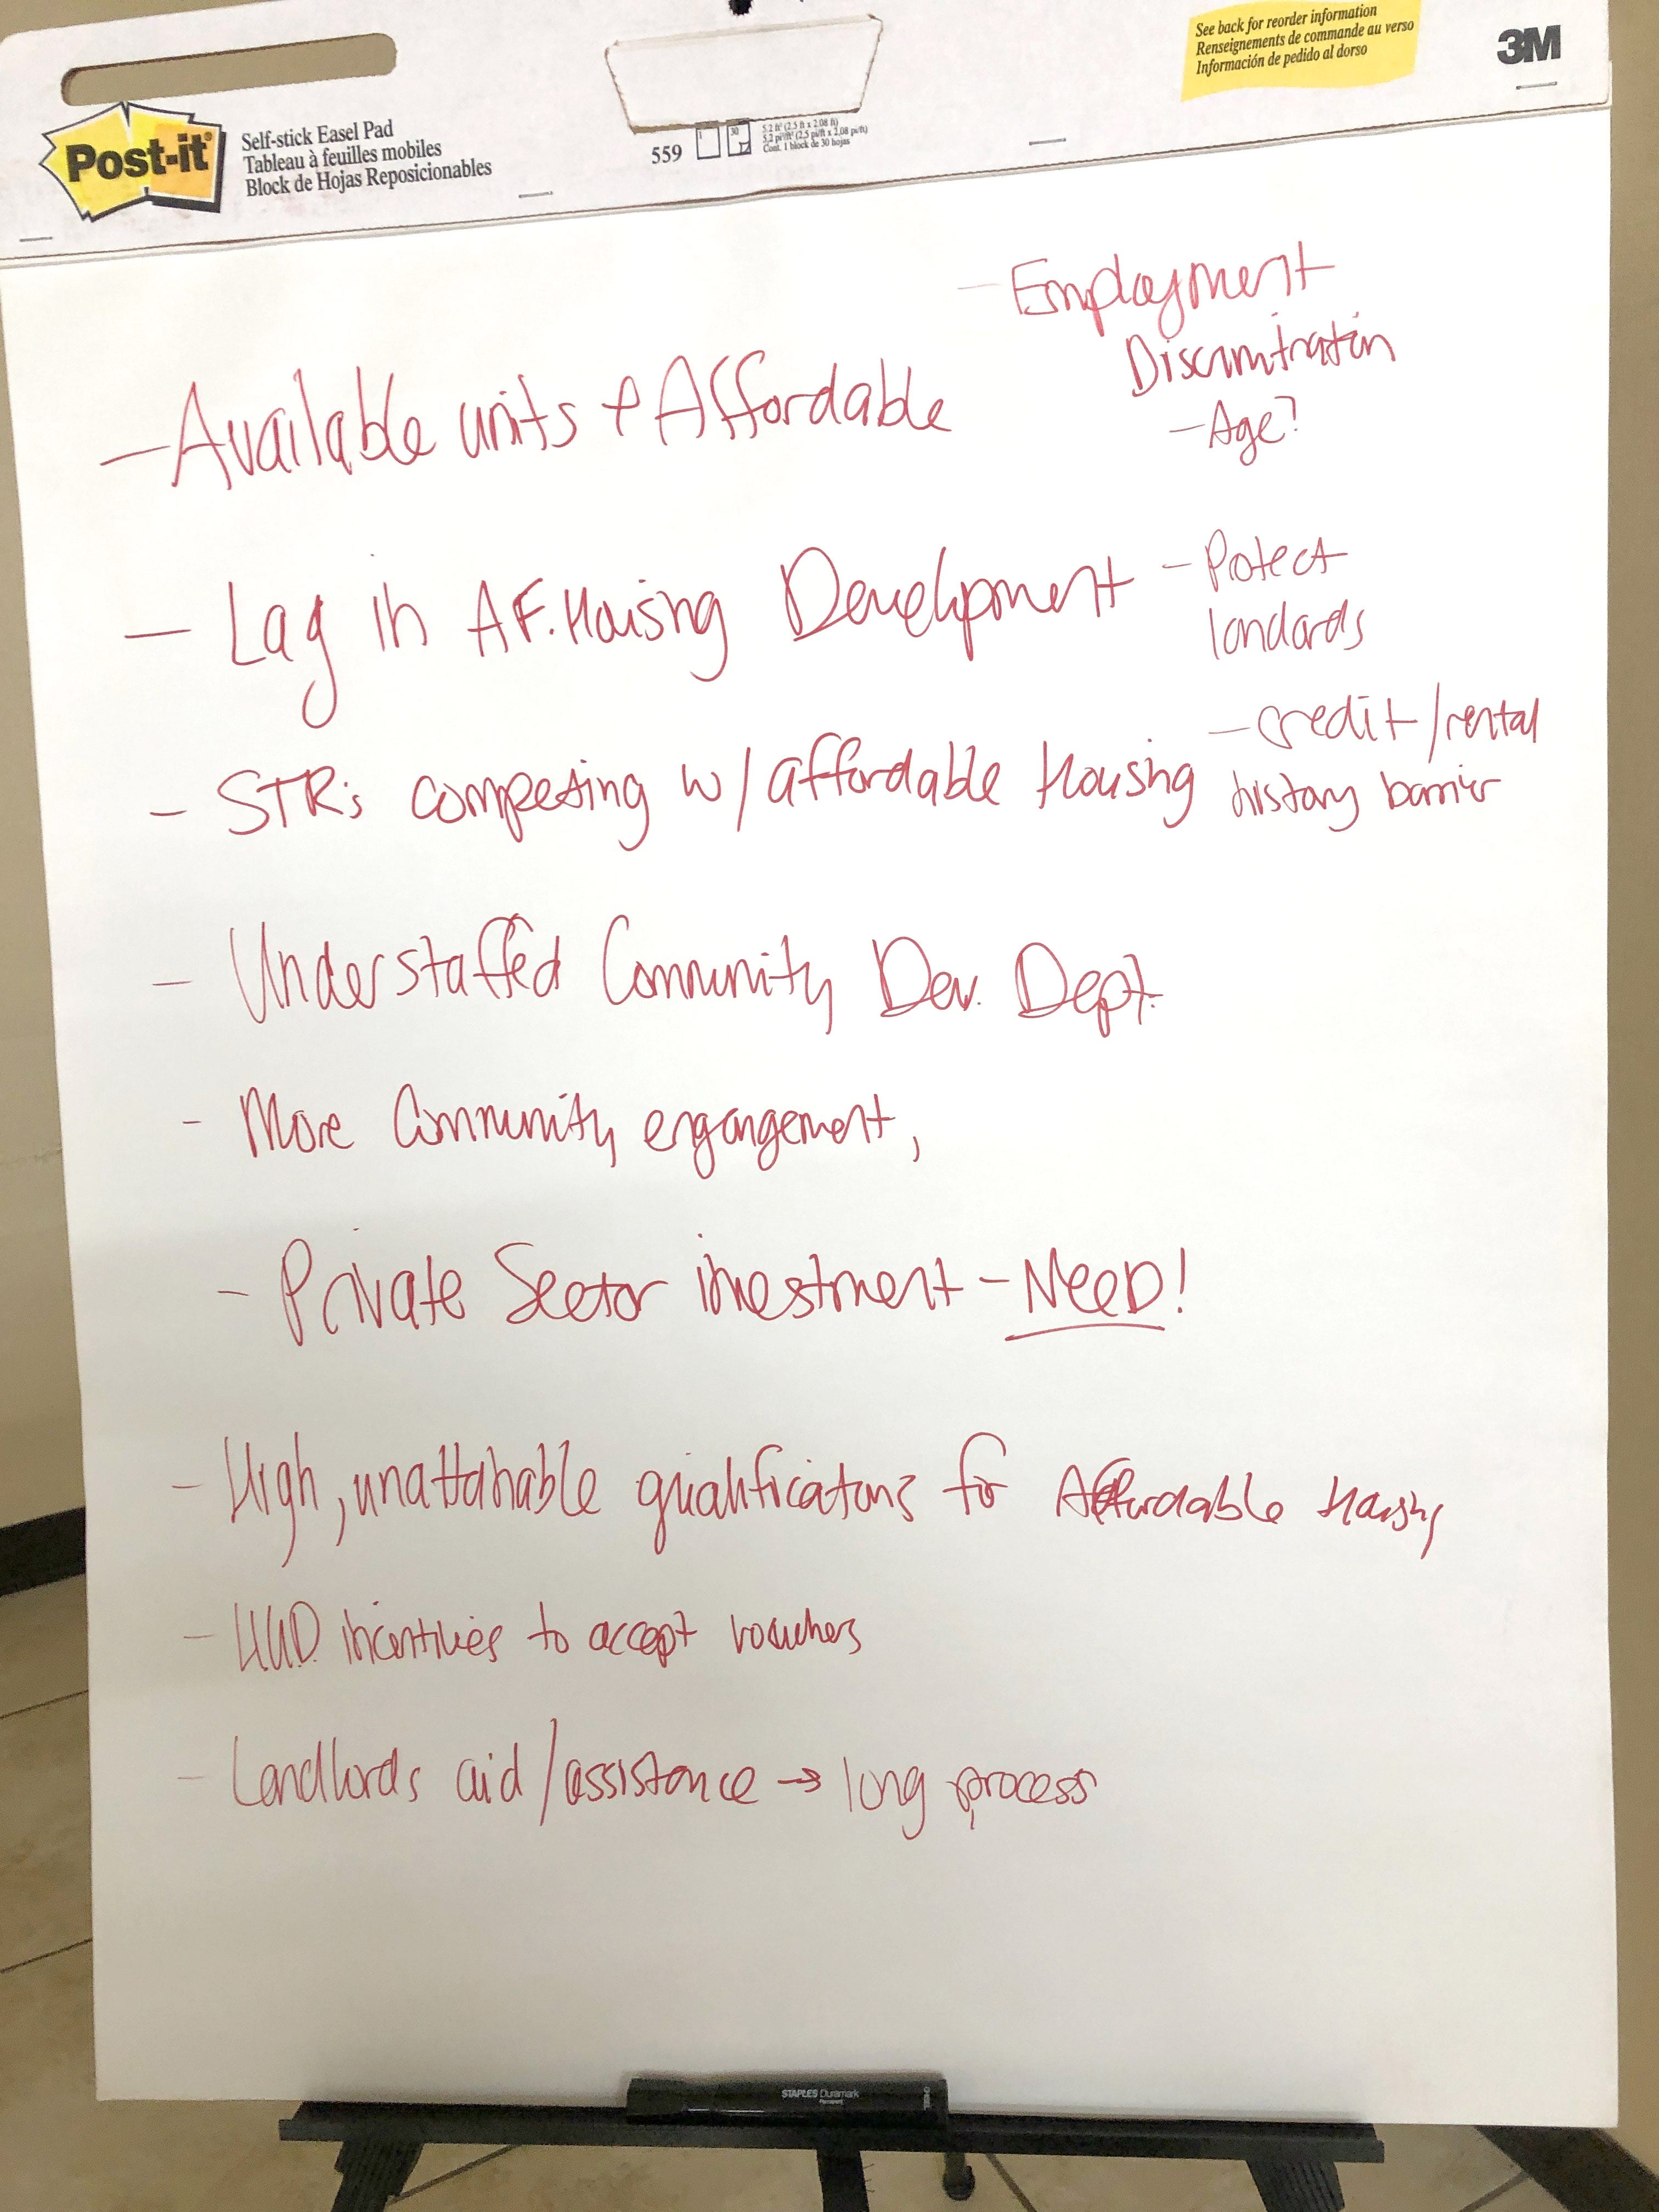 See back for reorder information
Renseignements de commande au verso
Información de pedido al dorso
3M
Post-it®
Self-stick Easel Pad
Tableau à feuilles mobiles
Block de Hojas Reposicionables
559
1
30
5.2 ft² (2.5 ft x 2.08 ft)
5,2 pi/ft² (2,5 pi/ft x 2,08 pi/ft)
Cont. 1 block de 30 hojas
- Employment
Discrimination
- Age?
- Available units + Affordable
- Lag in AF. Housing Development
- Protect
landords
- STR's competing w/ affordable Housing
- credit/rental
history barrier
- Understaffed Community Dev. Dept.
- More Community engangement,
- Private Sector investment - NEED!
- High, unattainable qualifications for Affordable Housing
- H.U.D. incentives to accept vouchers
- Landlords aid/assistance → long process
STAPLES Duramark
Permanent